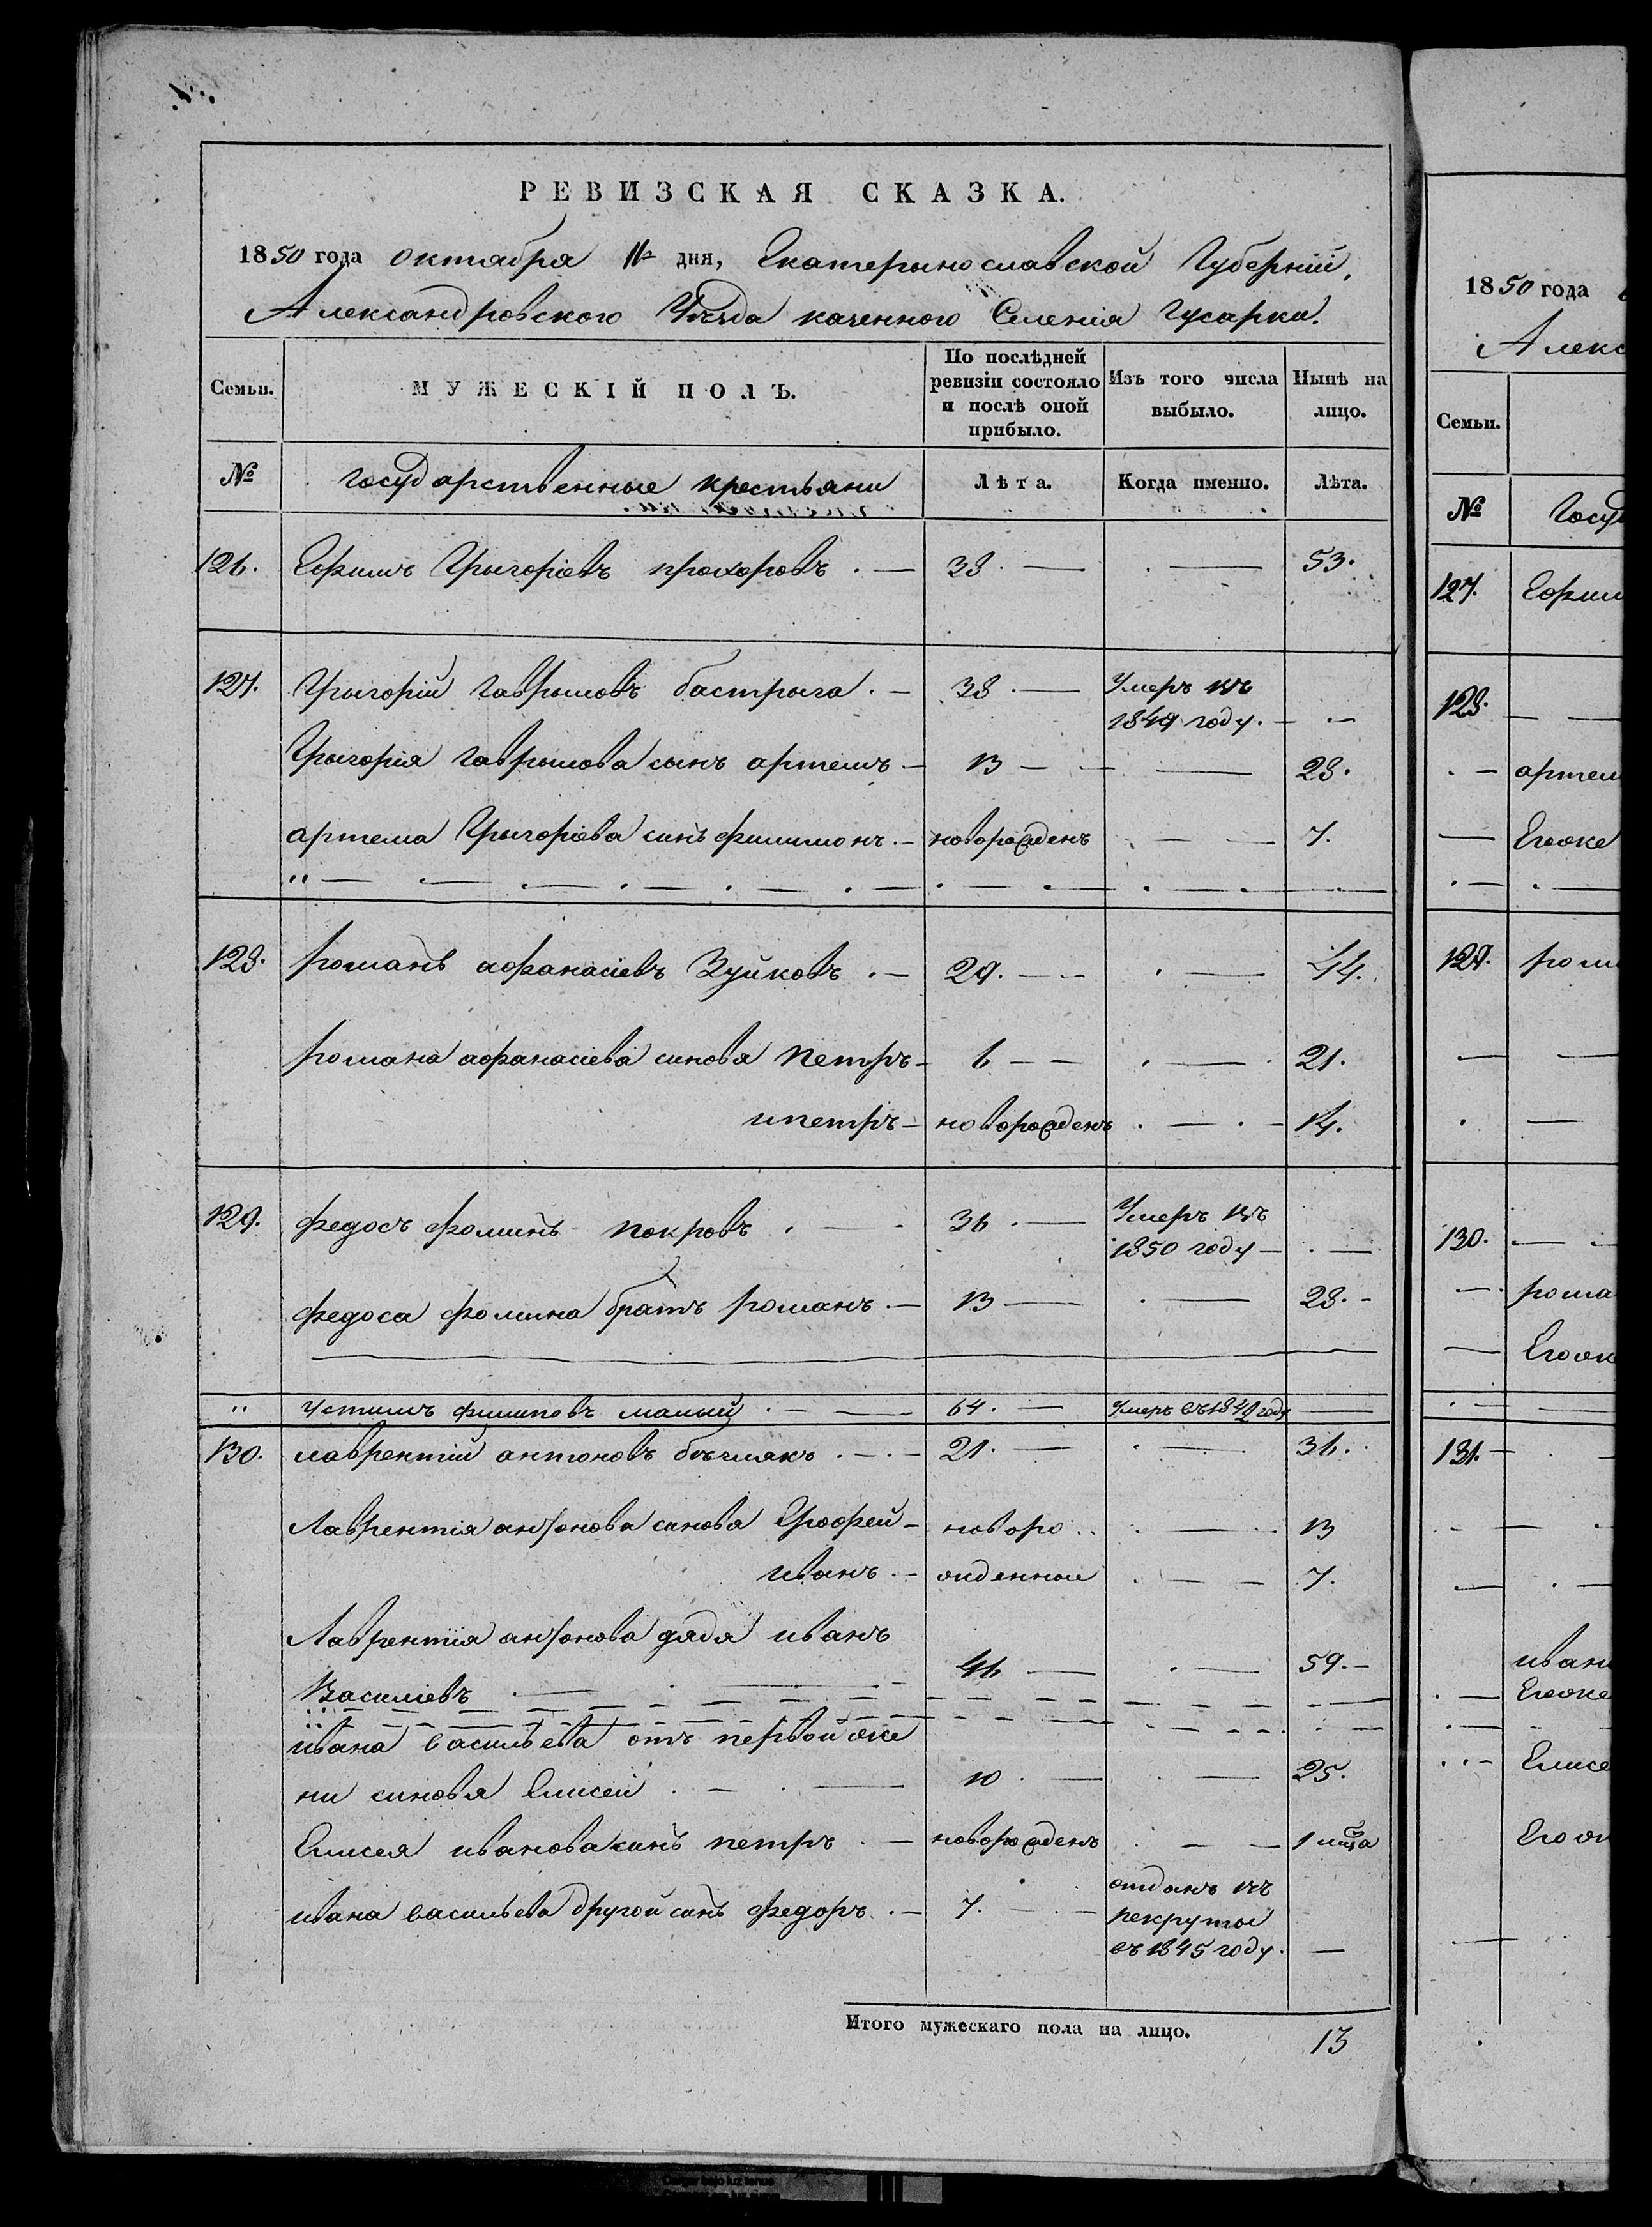 РЕВИЗСКАЯ СКАЗКА.
1850 года октабря 11 дня, Екатерынославской Губерніи,
Александровского Уезда казенного Селенія Гусарки.
Семьи. МУЖЕСКІЙ ПОЛЪ. По послѣдней ревизіи состояло и послѣ оной прибыло. Изъ того числа выбыло. Нынѣ на лицо.
№ государственные крестьяни Лѣта. Когда именно. Лѣта.
126. Ефимъ Грыгоріевъ прохоровъ . — 38 . — . — 53.
127. Грыгорій Гаврыловъ бастрыга . — 38 . — Умеръ въ
1849 году. — . —
Грыгорія Гаврылова сынъ артемъ — 13 — — 28.
артема Грыгоріева синъ филимонъ . — новорожденъ — 7.
128. романъ афанасіевъ Зуйковъ . — 29. — . — 44.
романа афанасіева синовя петръ — 6 — . — 21.
ипетръ — новорожденъ . — 14.
129. федосъ фоминъ покровъ . — 36 . — Умеръ въ
1850 году — . —
федоса фомина братъ романъ . — 13 — . — 28. —
" Устимъ филиповъ малый . — 64. — умеръ въ 1849 году —
130. лаврентій антоновъ . — 21. — . — 36.
Лаврентія антонова синова Ерофей — новоро . — 13
иванъ . — жденные . — 7.
Лаврентія антонова дядя иванъ
Василіевъ . — 46 — . — 59. —
ивана василъева отъ первой же
ни синовя Елисей . — 10 . — . — 25.
Елисея иванова синъ петръ . — новорожденъ . — 1 мца
ивана василъева другой синъ федоръ . — 7. — отданъ въ
рекруты
въ 1845 году. —
Итого мужескаго пола на лицо. 13
1850 года
Алекс
Семьи.
№ Госуд
127. Ефим
128. —
. — артем
— Егоже
129. рома
130. —
— рома
— Егож
131. —
иван
. — Егоже
Елисе
Егож